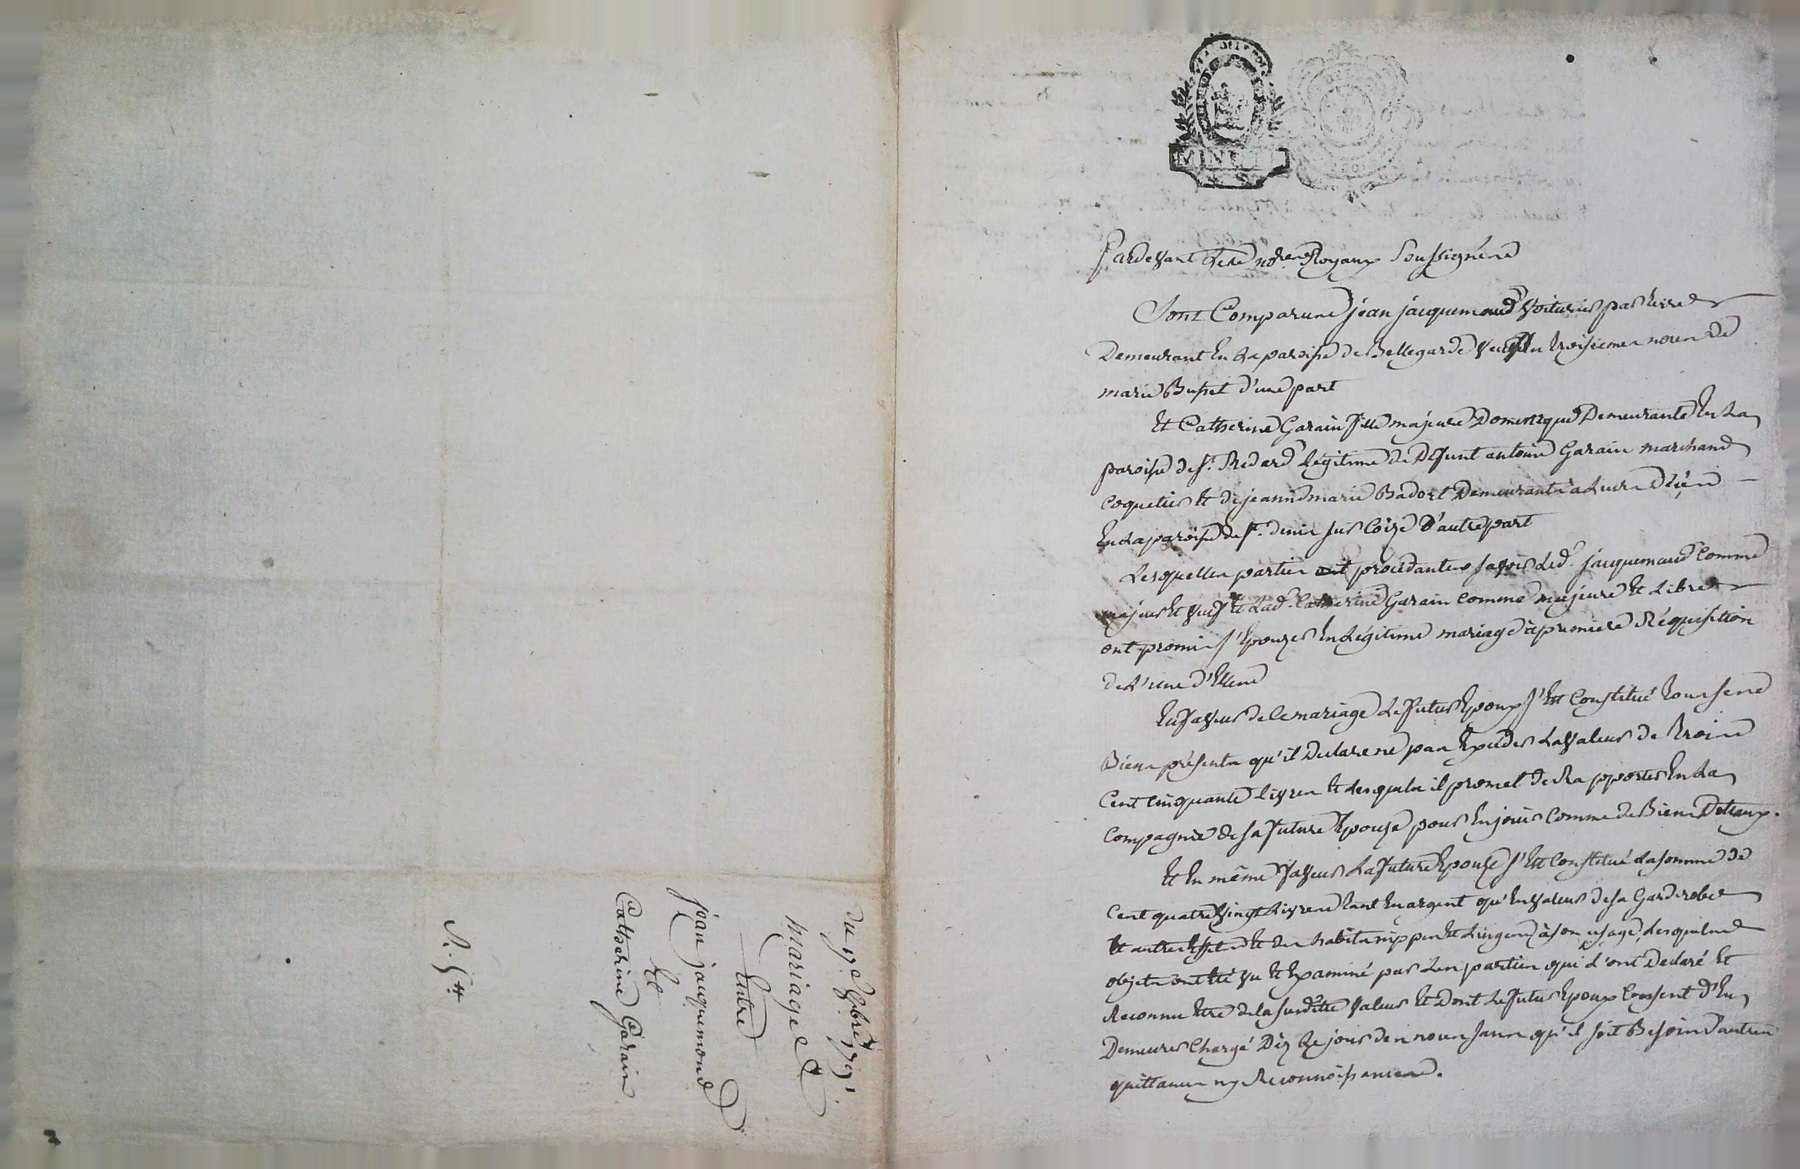 MINUTE
Pardevant les notres Royaux Soussignés
Sont Comparus jean jacquemond voiturier par terre
Demeurant En la paroisse de Bellegarde veuf En troisiemes noces de
marie Busset d'une part
Et Catherine Garain fille majeure Domestique Demeurante En la
paroisse de st. Medard Légitime de Defunt antoine Garain marchand
coquetier Et de jeanne marie Badoel Demeurante a
En la paroisse de st. denis sur Coize D'autre part
Lesquelles parties procedantes savoir Led. jacquemond Comme
majeur Et veuf Et Lad. Catherine Garain Comme majeure Et Libre
ont promis s'Epouzer En Légitime mariage à premiere Réquisition
de L'une d'Elles
En faveur de Ce mariage Le futur Epoux s'Est Constitué tous ses
Biens présents qu'il Declare ne pas Exceder La valeur de trois
Cent cinquante livres Et desquels il promet de Rapporter En la
compagnie de sa future Epouze pour En jouir Comme de Biens Dotaux.
Et En même faveur La future Epouze s'Est Constitué la somme de
Cent quatre vingt Livres tant En argent qu'En valeur de sa Garderobe
Et autres Effets Et des habits nippes Et Linges à son usage, Lesquels
objets ont été vu Et Examiné par Les parties qui L'ont Declaré Et
Reconnu Etre de la susditte valeur Et Dont Le futur Epoux Consent d'En
Demeurer Chargé Dez Le jour des noces sans qu'il soit Besoin d'autres
quittances ny Reconnoissances.
du 17e. 1791
mariage
Entre
jean jacquemond
Et
Catherine Garain